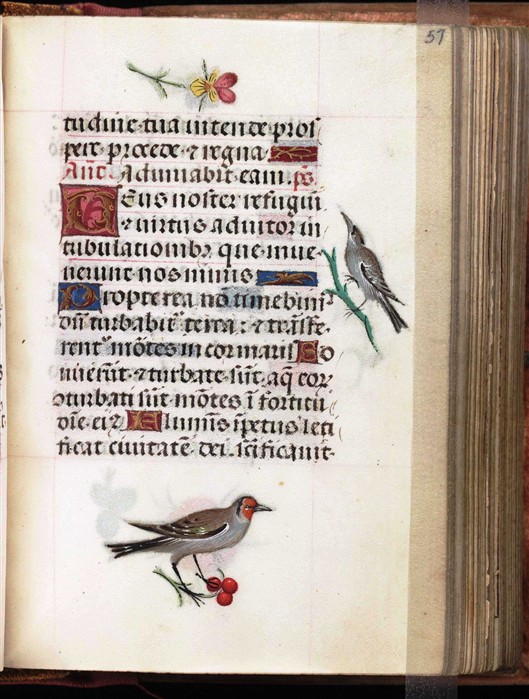 57
tudine tua intende pros
pere procede ⁊ regna
Añt Adiuuabit eam. ps
Deus noster refugiū
⁊ uirtus adiutor in
tribulationibꝫ que inue
nerunt nos nimis
Propterea nō timebim᷒
dū turbabit᷑ terra: ⁊ trāsfe
rent᷑ mōtes in cor maris So
nuerūt ⁊ turbate sūt aq̄ eoꝝ
cōturbati sūt mōtes ī fortitu
dīe ei᷒ Fluminis īpetus leti
ficat ciuitatē dei scīficauit